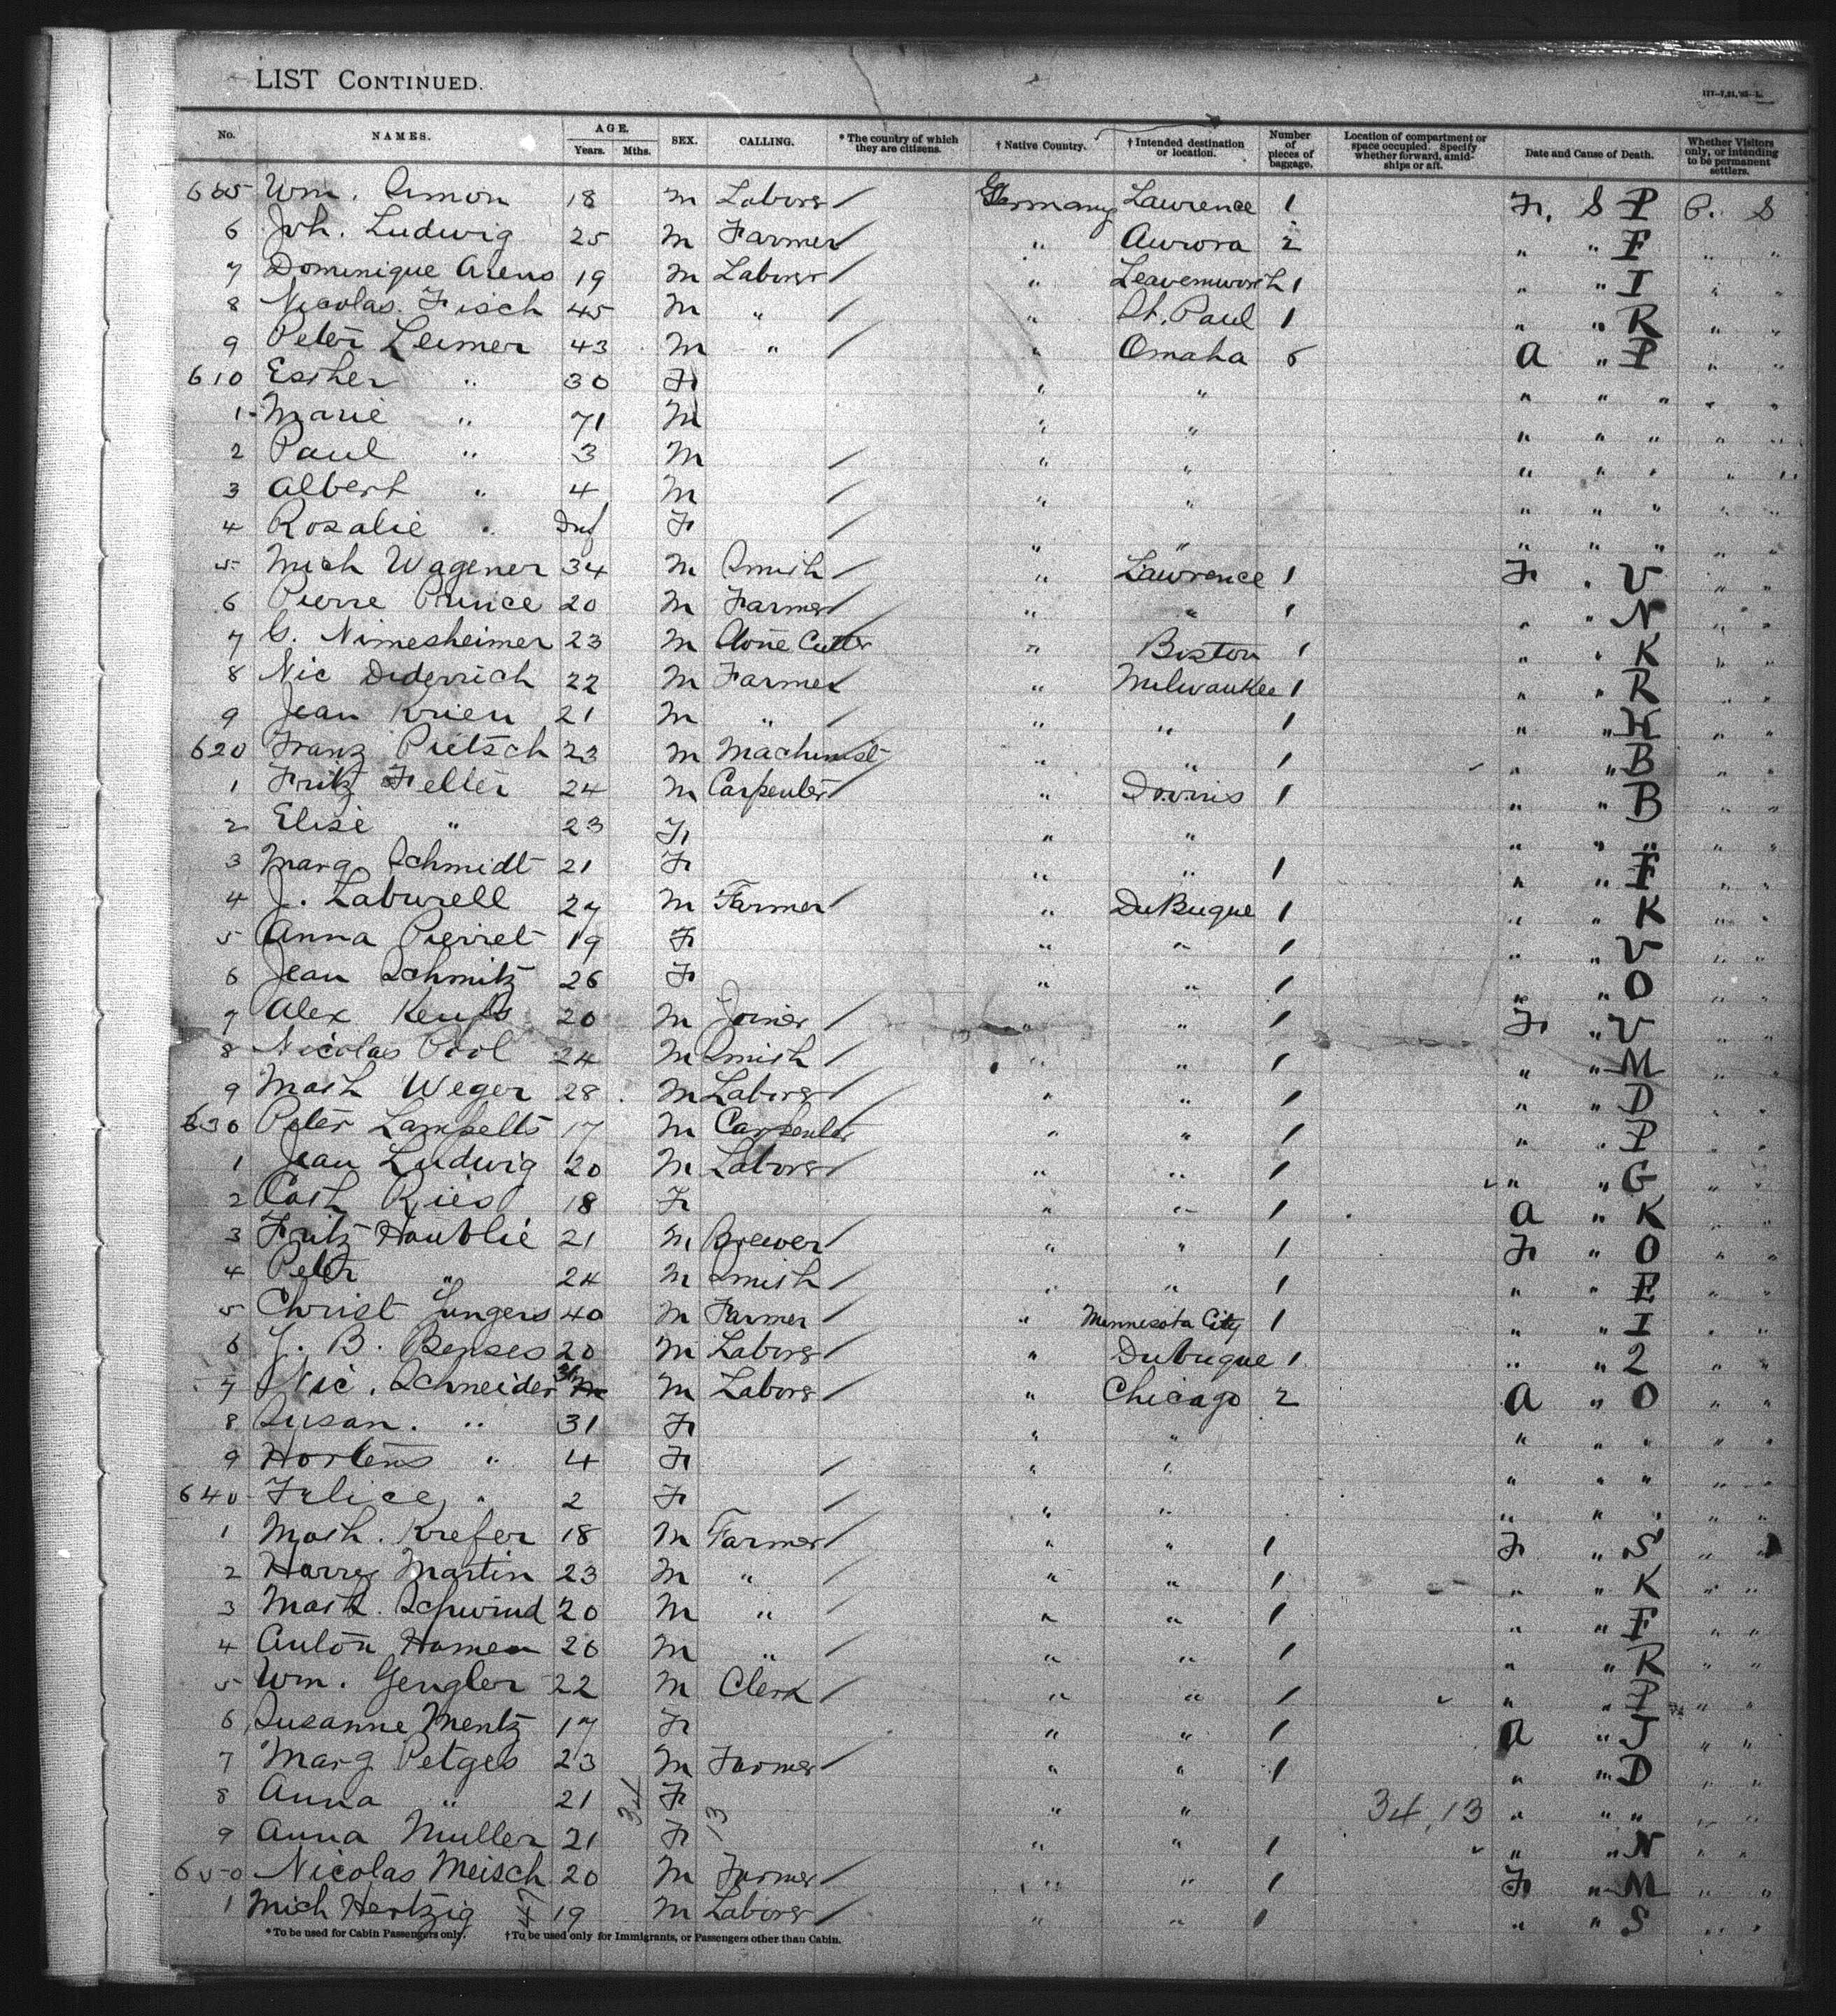 LIST CONTINUED.
No. NAMES. AGE. Years. Mths. SEX. CALLING. * The country of which they are citizens. † Native Country. † Intended destination or location. Number of pieces of baggage. Location of compartment or space occupied. Specify whether forward, amidships or aft. Date and Cause of Death. Whether Visitors only, or intending to be permanent settlers.
605 Wm. Simon 18 M Laborer / Germany Lawrence 1 Fr. S P P. S
6 Joh. Ludwig 25 M Farmer / " Aurora 2 " " F " "
7 Dominique Arens 19 M Laborer / " Leavenworth 1 " " I " "
8 Nicolas Fisch 45 M " / " St. Paul 1 " " R " "
9 Peter Leimer 43 M " / " Omaha 6 A " P " "
610 Esther " 30 F " " " " " " "
1 Marie " 71 M " " " " " " "
2 Paul " 3 M / " " " " " " "
3 Albert " 4 M / " " " " " " "
4 Rosalie " Inf F / " " " " " " "
5 Mich Wagener 34 M Smith / " Lawrence 1 F " V " "
6 Pierre Prince 20 M Farmer / " " 1 " " N " "
7 G. Nimesheimer 23 M Stone Cutter " Boston 1 " " K " "
8 Nic Dederrich 22 M Farmer " Milwaukee 1 " " R " "
9 Jean Krien 21 M " / " " 1 " " H " "
620 Franz Pietsch 23 M Machinist " " 1 " " B " "
1 Fritz Feller 24 M Carpenter / " 1 " " B " "
2 Elise " 23 F " " " " " " "
3 Marg Schmidt 21 F " " 1 " " F " "
4 J. Laburell 27 M Farmer / " DuBuque 1 " " K " "
5 Anna Pierret 19 F " " 1 " " V " "
6 Jean Schmitz 26 F " " 1 " " O " "
7 Alex 20 M Joiner / " " 1 F " V " "
8 Nicolas Pool 24 M Smith / " " 1 " " M " "
9 Math Weger 28 M Laborer / " " 1 " " D " "
630 Peter Lampelts 17 M Carpenter " " 1 " " P " "
1 Jean Ludwig 20 M Laborer / " " 1 " " G " "
2 Cath Ries 18 F " " 1 A " K " "
3 Fritz Houblie 21 M Brewer / " " 1 F " O " "
4 Peter " 24 M Smith / " " 1 " " E " "
5 Christ Jungers 40 M Farmer / " Minnesota City 1 " " I " "
6 J. B. Benses 20 M Laborer / " Dubuque 1 " " 2 " "
7 Nic. Schneider 31 M Laborer / " Chicago 2 A " O " "
8 Susan. " 31 F " " " " " " "
9 Hortens " 4 F / " " " " " " "
640 Felice " 2 F / " " " " " " "
1 Math. Krefer 18 M Farmer / " " 1 F " S " "
2 Harry Martin 23 M " / " " 1 " " K " "
3 Math. Schwind 20 M " / " " 1 " " F " "
4 Anton Hamen 26 M " / " " 1 " " R " "
5 Wm. Gengler 22 M Clerk / " " 1 " " P " "
6 Susanne Mentz 17 F " " 1 A " J " "
7 Marg Petges 23 M Farmer / " " 1 " " D " "
8 Anna " 21 34 F 13 " " 34,13 " " " " "
9 Anna Muller 21 F " " 1 " " N " "
650 Nicolas Meisch 20 M Farmer / " " 1 F " M " "
1 Mich Hertzig 19 M Laborer / " " 1 " " S " "
* To be used for Cabin Passengers only. † To be used only for Immigrants, or Passengers other than Cabin.